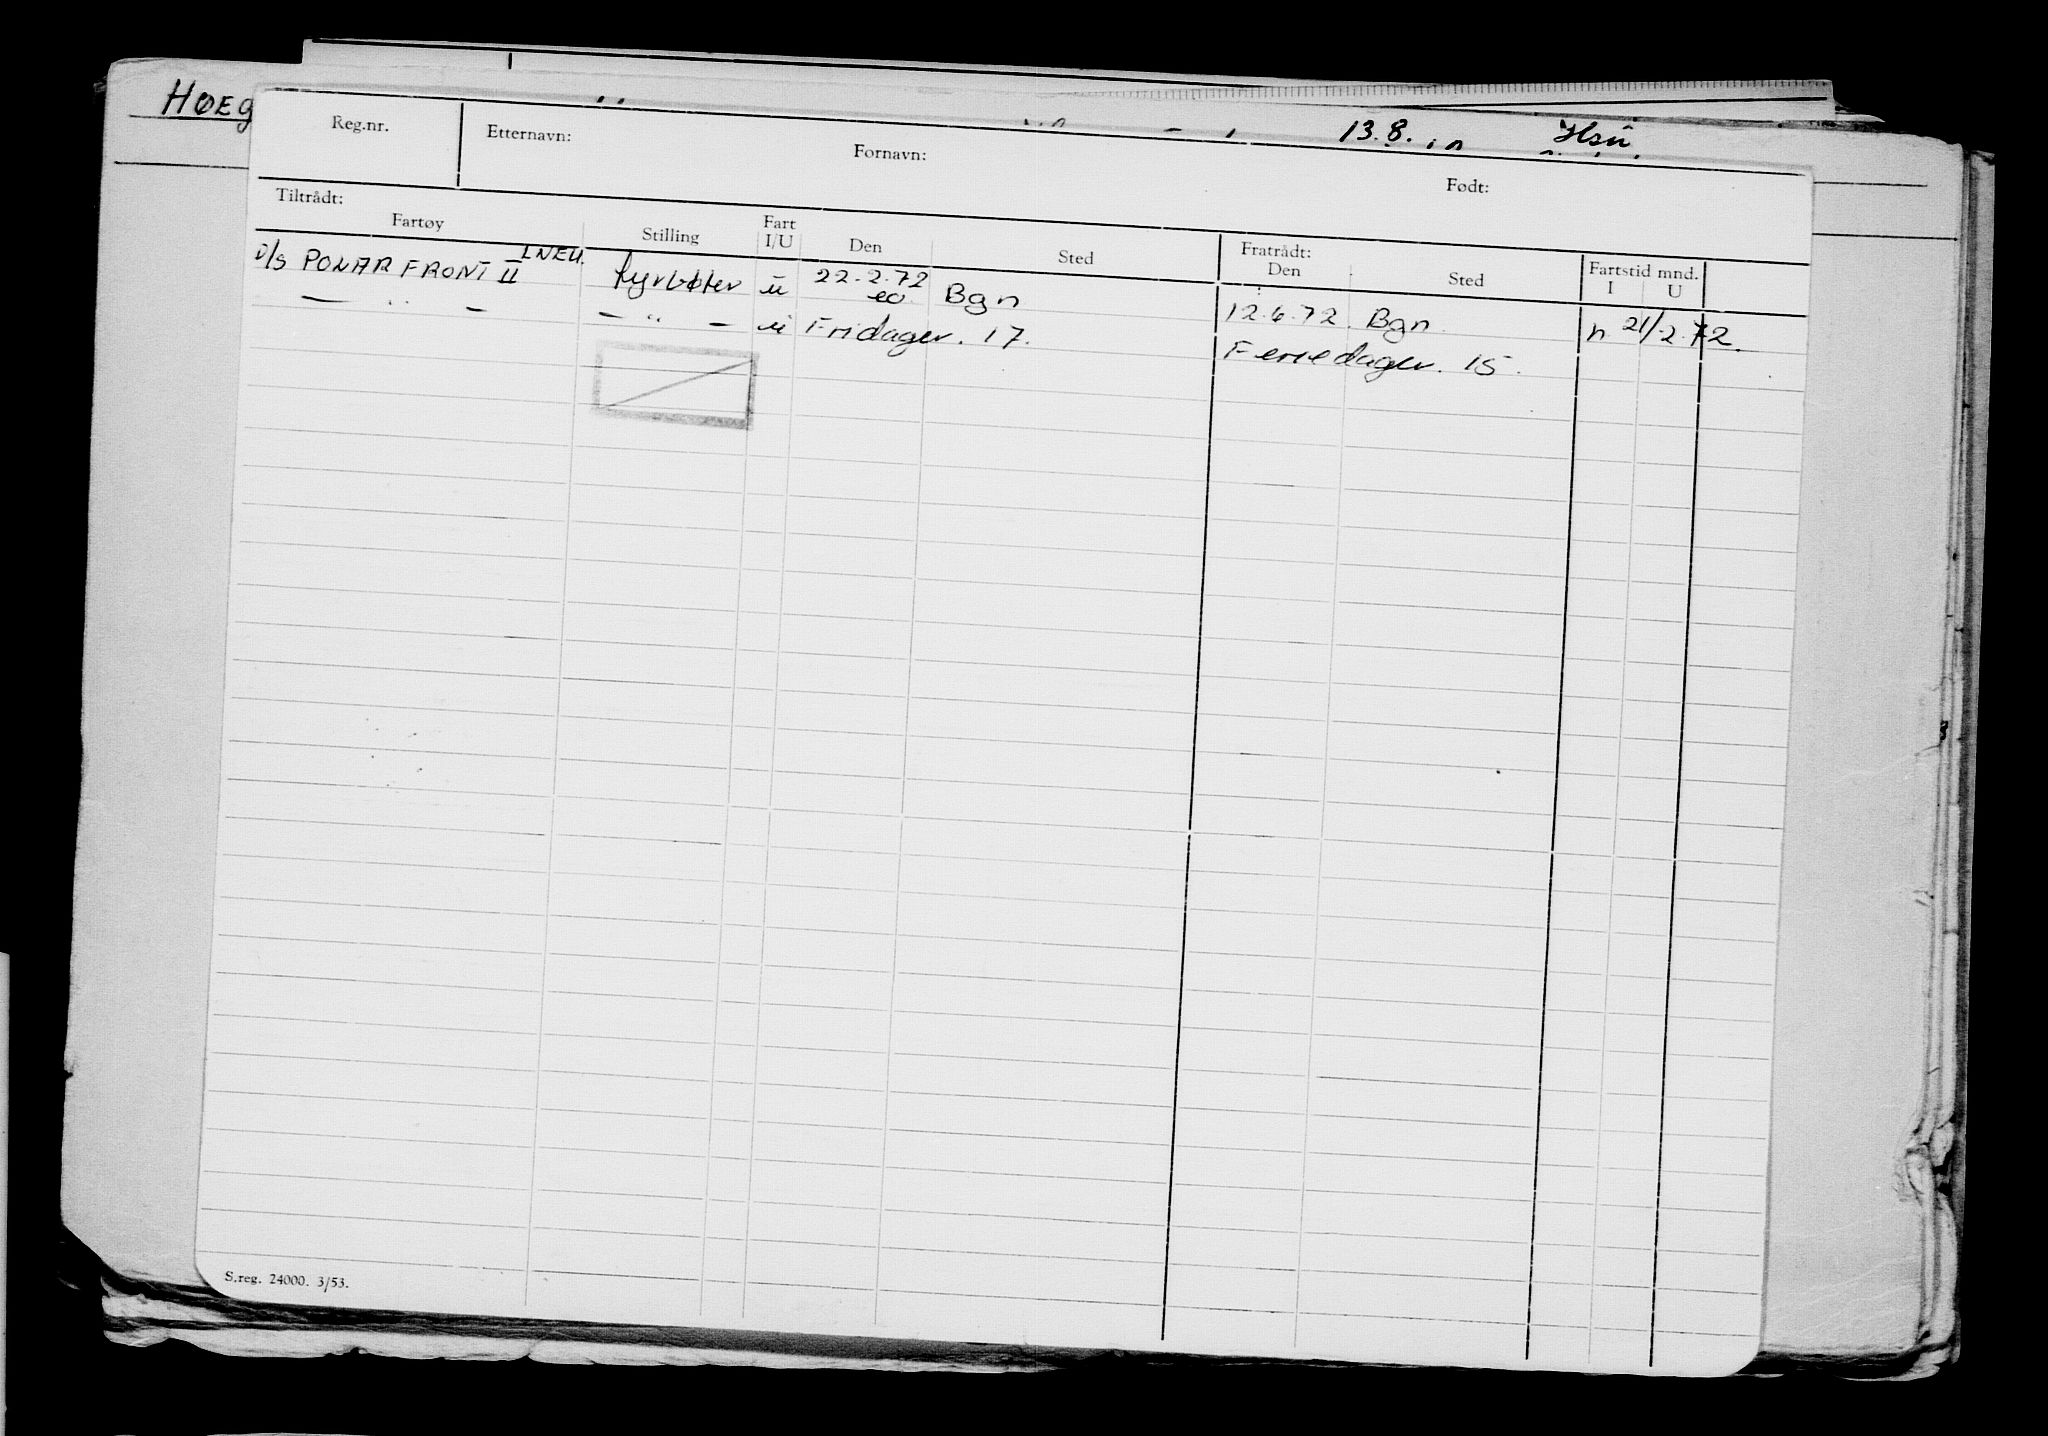 HØEG
13.8. Hsü
Reg.nr. Etternavn: Fornavn: Født:
Tiltrådt: Fratrådt:
Fartøy Stilling Fart I/U Den Sted Den Sted Fartstid mnd. I U
D/S POLARFRONT II LNEU. fyrbøter u 22.2.72 Bgn 12.6.72. Bgn. n. 21/2.72.
— " — — " — u Fridager. 17. Feriedager. 15.
S.reg. 24000. 3/53.